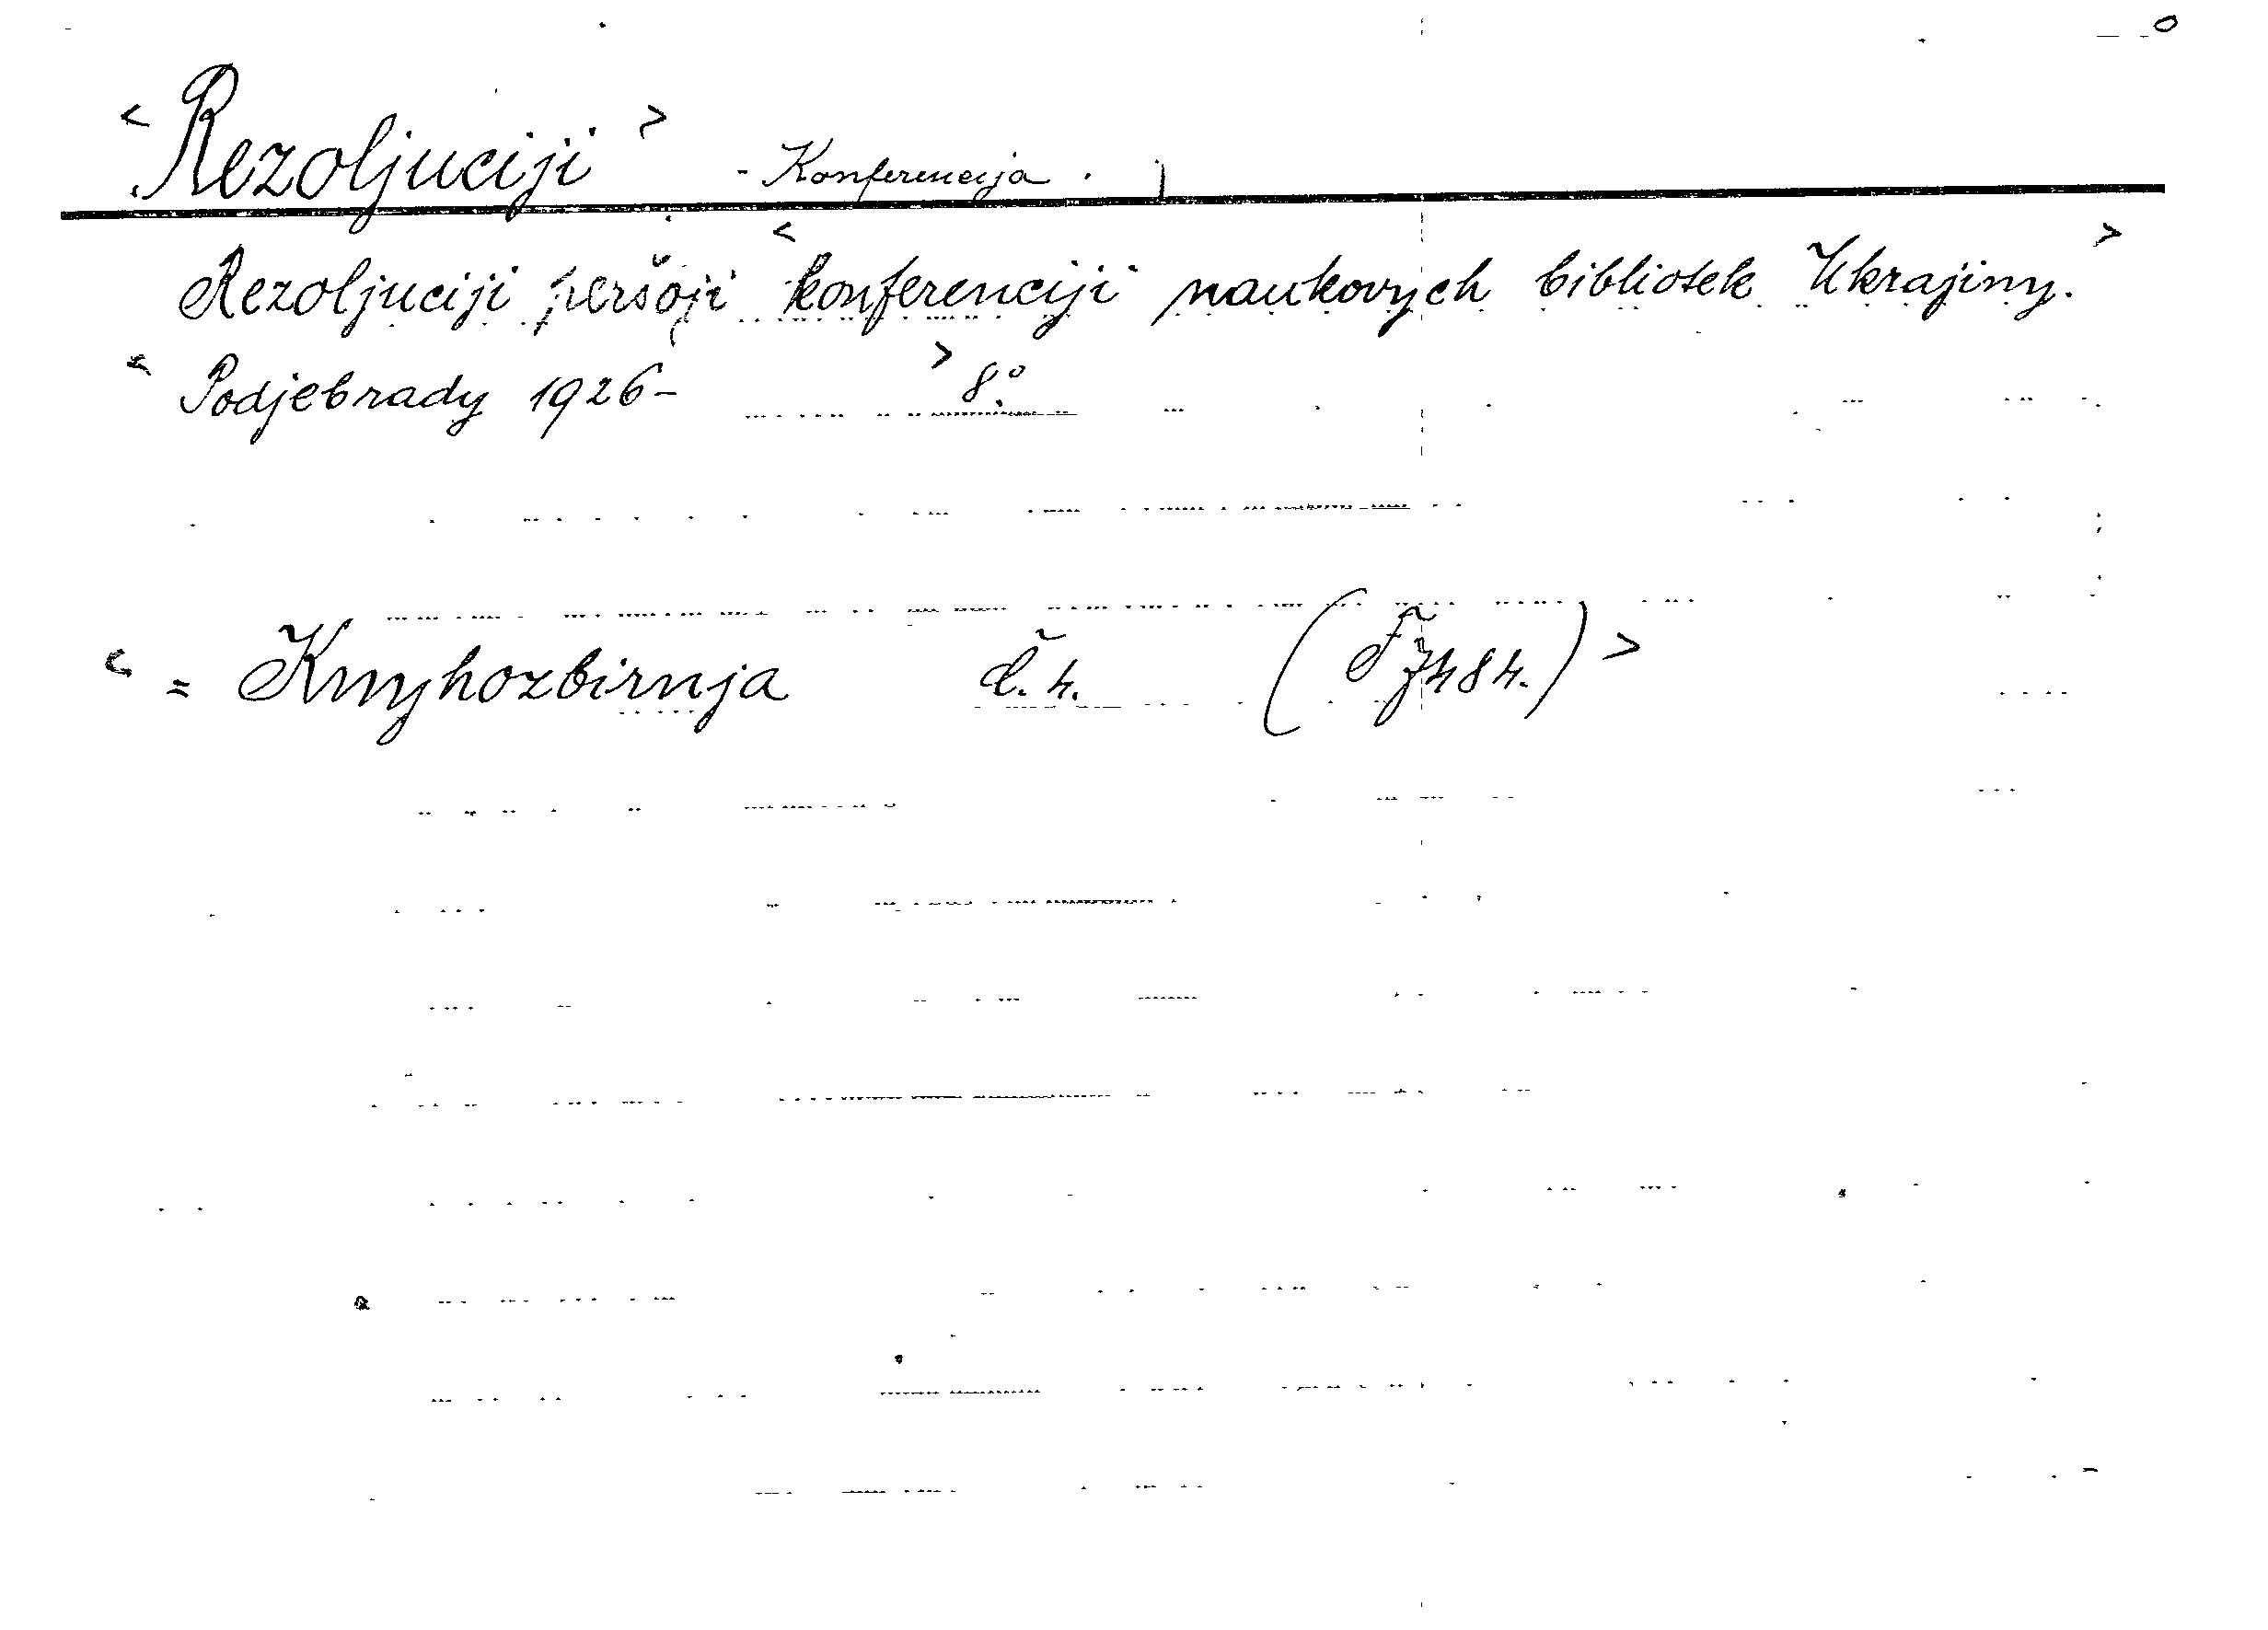 < Rezoljuciji > - Konferencija .
Rezoljuciji peršoji < konferenciji naukovych bibliotek Ukrajiny. >
< Podjebrady 1926- > 8°.
< = Knyhozbirnja č. 4. ( 7484.) >